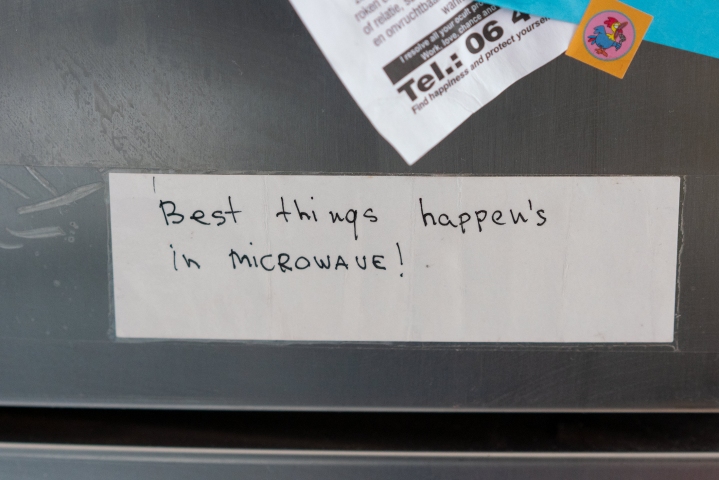 roken
of relatie, s
en onvruchtba
I resolve all your ocult pro
Work, love, chance and
Tel.: 06 4
Find happiness and protect yoursel
Best things happen's
in MICROWAVE!